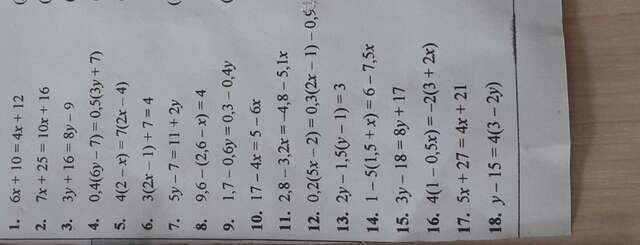 1. 6x + 10 = 4x + 12
2. 7x + 25 = 10x + 16
3. 3y + 16 = 8y − 9
4. 0,4(6y − 7) = 0,5(3y + 7)
5. 4(2 − x) = 7(2x − 4)
6. 3(2x − 1) + 7 = 4
7. 5y − 7 = 11 + 2y
8. 9,6 − (2,6 − x) = 4
9. 1,7 − 0,6y = 0,3 − 0,4y
10. 17 − 4x = 5 − 6x
11. 2,8 − 3,2x = −4,8 − 5,1x
12. 0,2(5x − 2) = 0,3(2x − 1) − 0,9
13. 2y − 1,5(y − 1) = 3
14. 1 − 5(1,5 + x) = 6 − 7,5x
15. 3y − 18 = 8y + 17
16. 4(1 − 0,5x) = −2(3 + 2x)
17. 5x + 27 = 4x + 21
18. y − 15 = 4(3 − 2y)